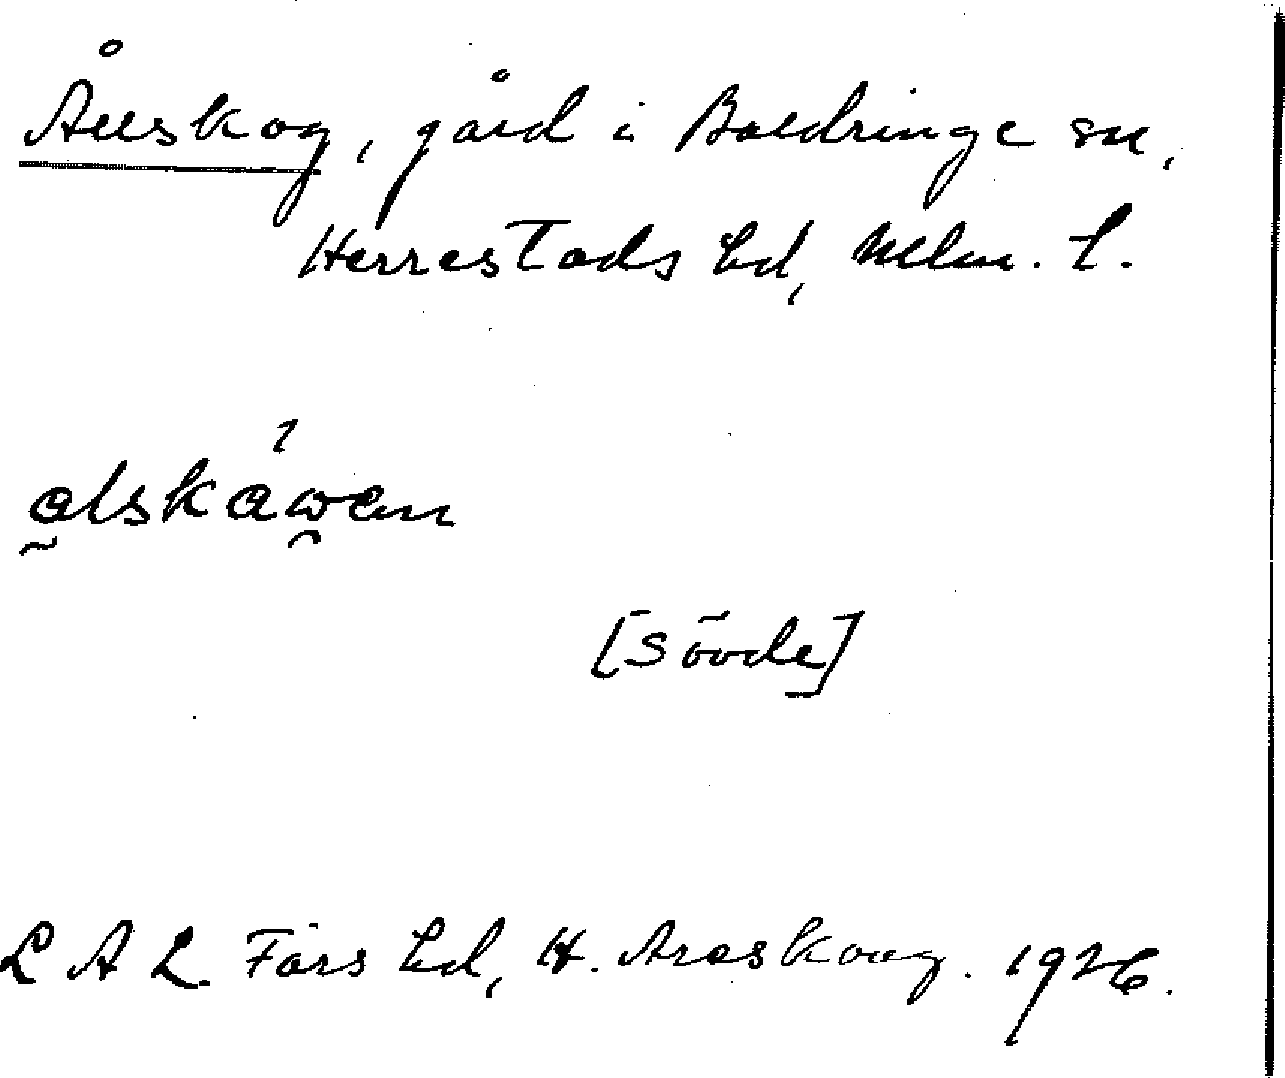 Ållskog, gård i Baldringe sn,
Herrestads hd, Mlm. l.
alskåwen
[Sövde]
L A L. Färs hd, H. Areskoug. 1926.